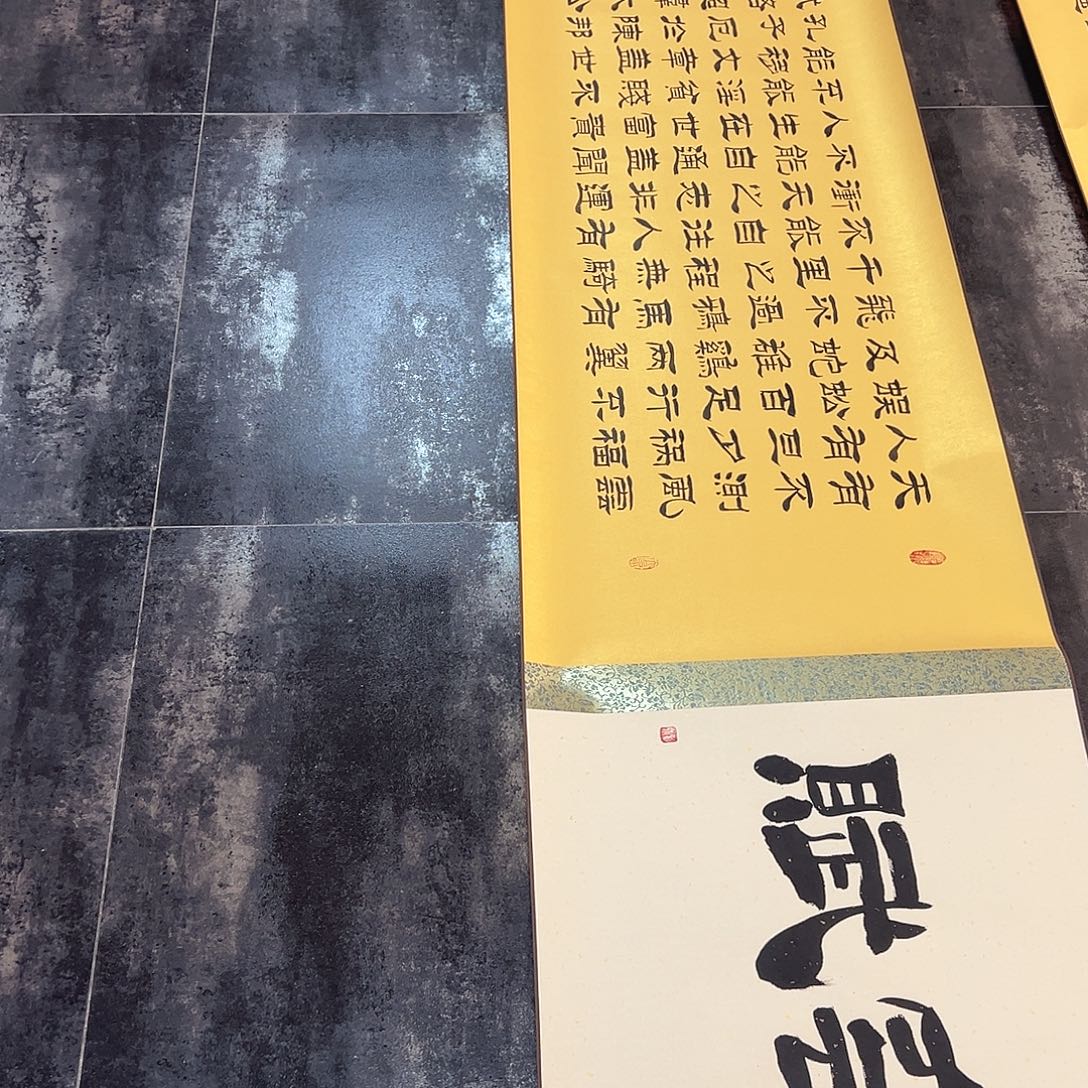 賦
天有不測風雲
人有旦夕禍福
蜈蚣百足行不
及蛇雄鷄兩翼
飛不過鴉馬有
千里之程無騎
不能自往人有
衝天之志非運
不能自通盖聞
人生在世富貴
不能淫貧賤不
能移文章盖世
孔子厄於陳邦